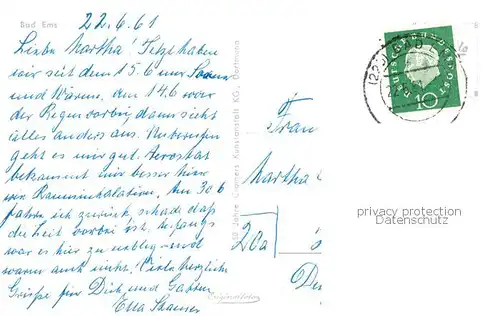 Bad Ems
22.6.61
Liebe Martha! Jetzt haben
wir seit dem 15.6 nur Sonne
und Wärme, am 14.6 war
der Regen vorbei dann sieht
alles anders aus. Unberufen
geht es mir gut. Aerosol
bekommt mir besser hier
wie Rauminhalation. Am 30.6
fahre ich zurück schade daß
die Zeit vorbei ist. Anfangs
war es hier zu neblig und
waren auch nicht! Viele herzliche
Grüße für Dich und Gatten
Ella
50 Jahre Cramers Kunstanstalt KG., Dortmund
Originalfoto
Frau
Martha
20a
DEUTSCHE BUNDESPOST
10
privacy protection
Datenschutz